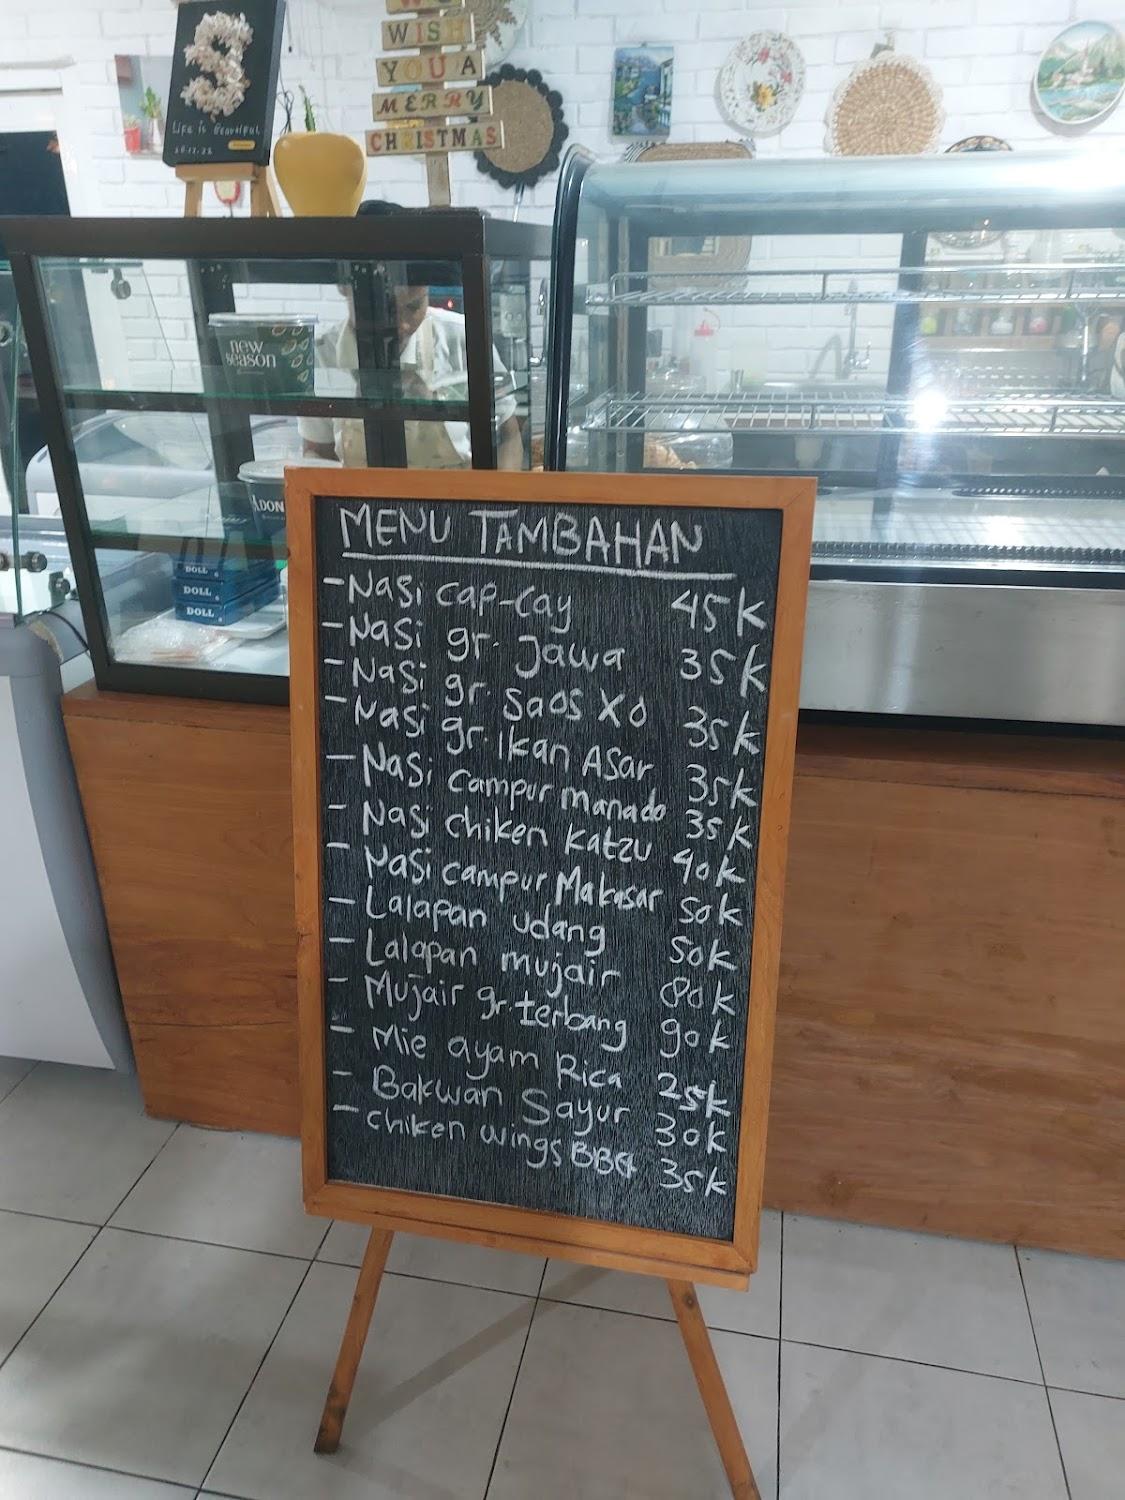 WE
WISH
YOU A
MERRY
CHRISTMAS
Life is Beautiful
new
season
DOLL
DOLL
MENU TAMBAHAN
- Nasi cap-cay 45k
- Nasi gr. Jawa 35k
- Nasi gr. Saos XO 35k
- Nasi gr. Ikan Asar 35k
- Nasi campur manado 35k
- Nasi chiken katzu 40k
- Nasi campur Makasar 50k
- Lalapan udang 50k
- Lalapan mujair 80k
- Mujair gr. terbang 90k
- Mie ayam Rica 25k
- Bakwan Sayur 30k
- chiken wings BBQ 35k